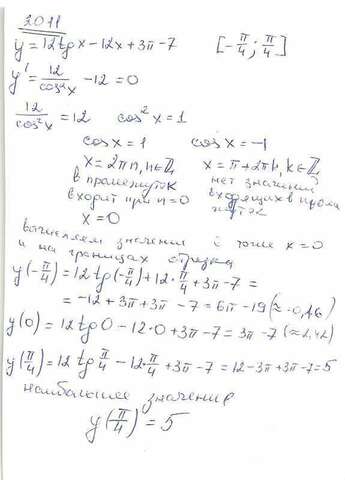 2011
y = 12tgx - 12x + 3π - 7 [-π/4; π/4]
y' = 12/cos²x - 12 = 0
12/cos²x = 12 cos²x = 1
cosx = 1 cosx = -1
x = 2πn, n∈Z x = π + 2πk, k∈Z
в промежуток нет значений
входит при n=0 входящих в проме
x = 0 жуток
вычисляем значения в точке x = 0
и на границах отрезка
y(-π/4) = 12tg(-π/4) + 12·π/4 + 3π - 7 =
= -12 + 3π + 3π - 7 = 6π - 19 (≈ -0,16)
y(0) = 12tg0 - 12·0 + 3π - 7 = 3π - 7 (≈ 2,42)
y(π/4) = 12tg π/4 - 12·π/4 + 3π - 7 = 12 - 3π + 3π - 7 = 5
наибольшее значение
y(π/4) = 5